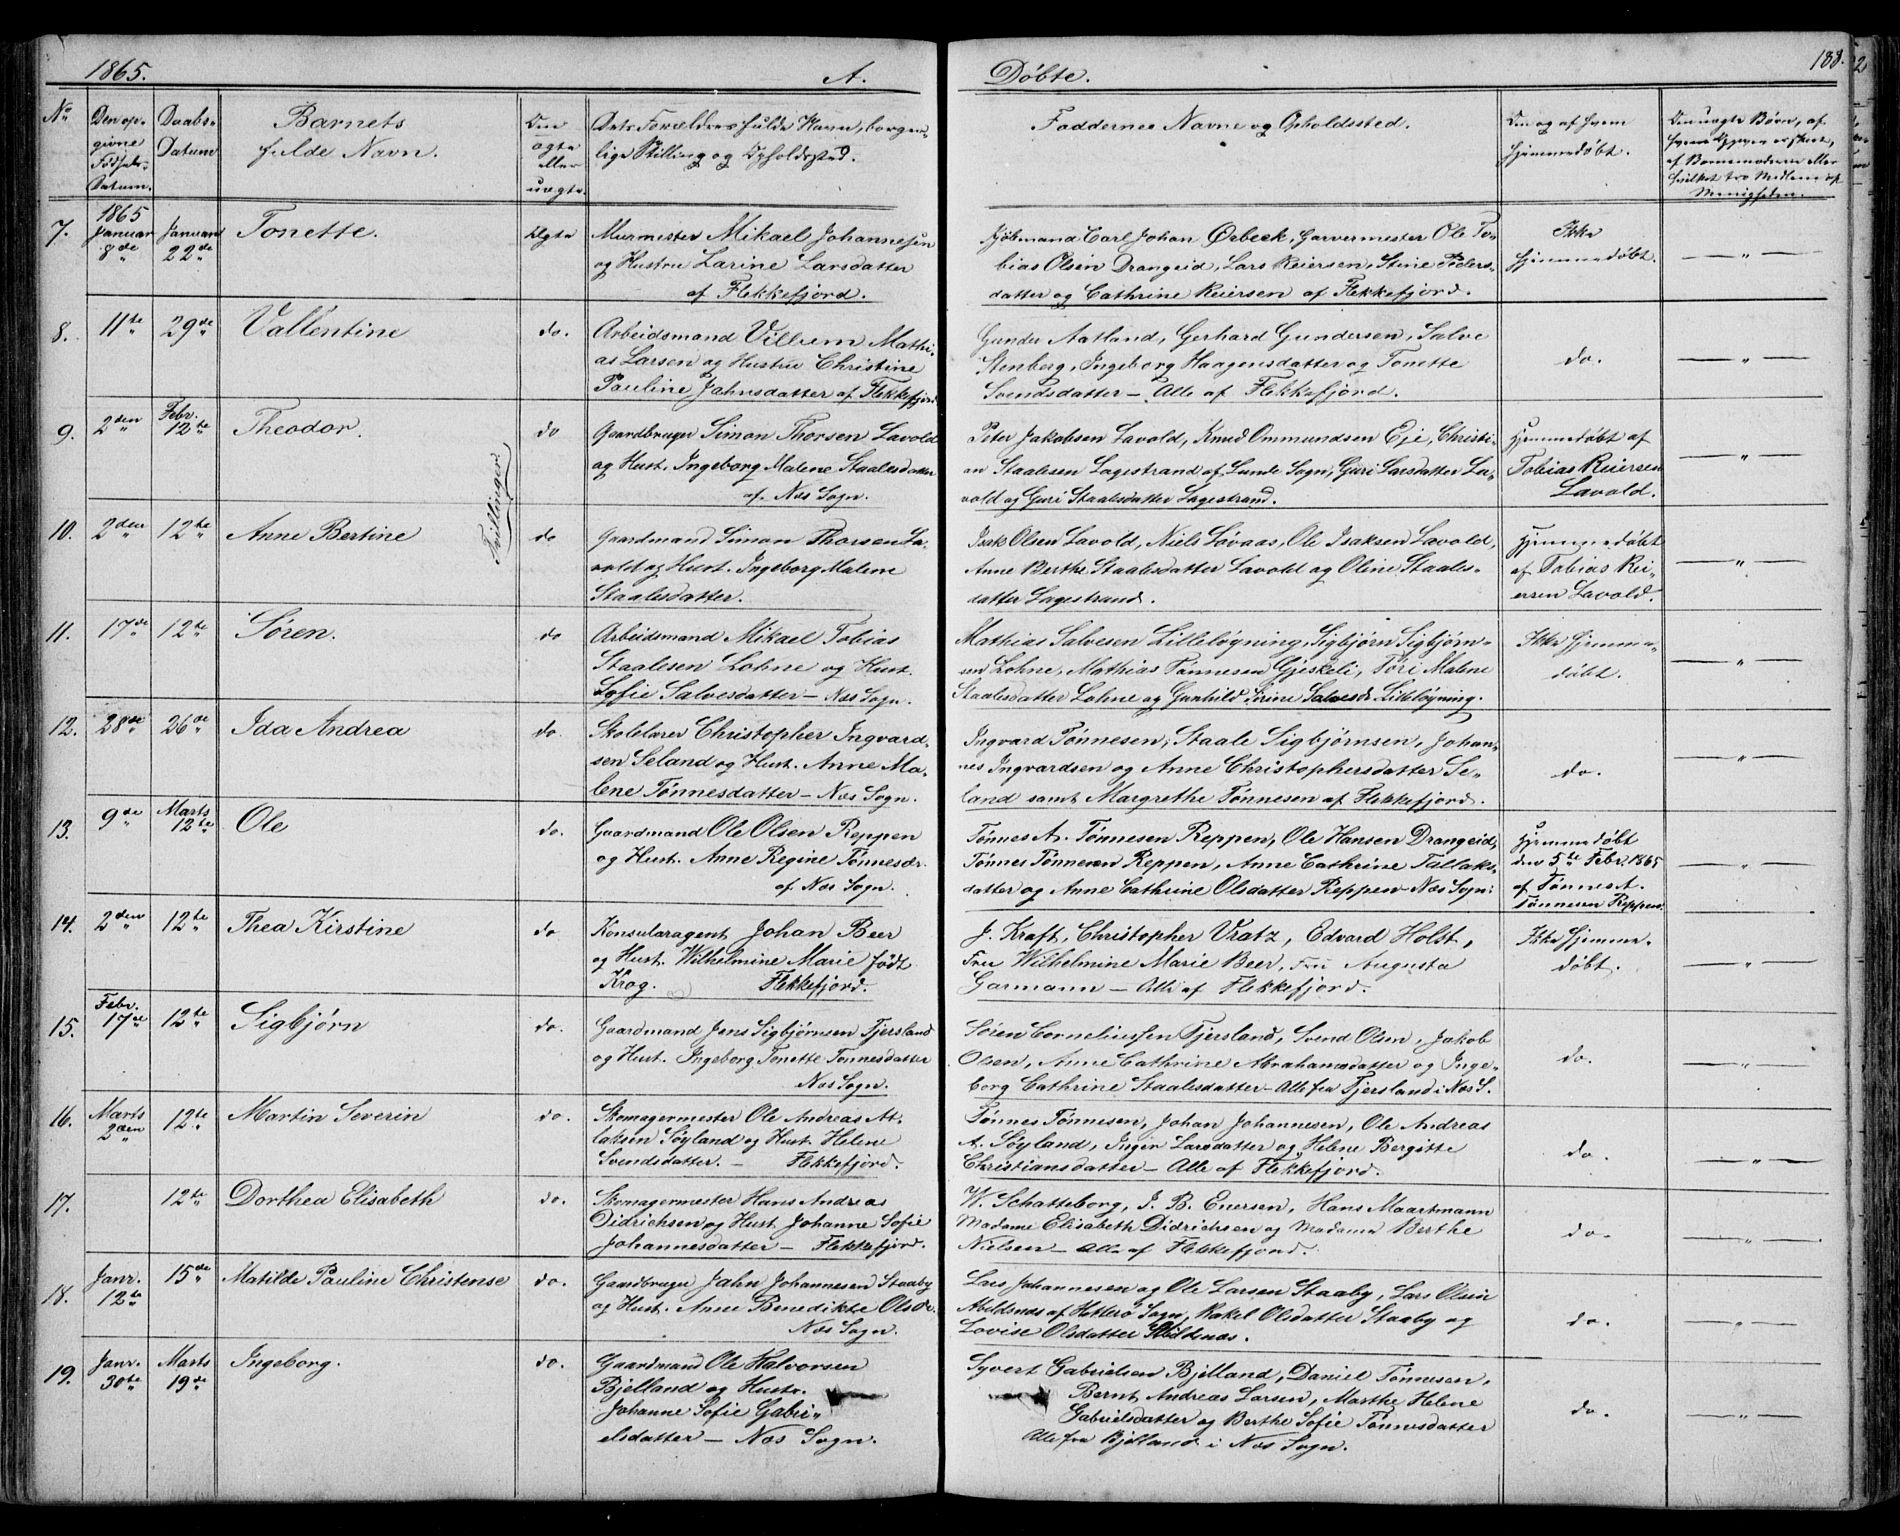 1865.
A.
Døbte.
188.
No
Den op-
givne
Fødsels-
Datum.
Daabs-
Datum
Barnets
fulde Navn.
Om
ægte
eller
uægte.
Dets Forældres fulde Navn, borger-
lige Stilling og Opholdssted.
Faddernes Navne og Opholdssted.
Om og af hvem
hjemmedøbt.
7.
1865
Januar
8de
Januar
22de
Tonette.
Ægte
Murmester Mikael Johannesen
og Hustru Larine Larsdatter
af Flekkefjord.
Kjøbmand Carl Johan Ørbeck, Garvermester Ole To-
bias Olsen Drangeid, Lars Reiersen, Stine Peders-
datter og Cathrine Reiersen af Flekkefjord.
Ikke
hjemmedøbt.
— " —
8.
11te
29de
Vallentine
do.
Arbeidsmand Villum Mathi-
as Larsen og Hustru Christine
Pauline Jahnsdatter af Flekkefjord
Gunder Aatland, Gerhard Gundersen, Salve
Stenberg, Ingeborg Haagensdatter og Tonette
Svendsdatter — Alle af Flekkefjord.
do.
— " —
9.
2den
Febr.
12te
Theodor.
Tvillinger
do
Gaardbruger Simon Thorsen Lavold
og Hust. Ingeborg Malene Staalesdatter
af Næs Sogn.
Peter Jakobsen Lavold, Knud Ommundsen Eje, Christi-
an Staalesen Lagestrand af Lunde Sogn, Guri Larsdatter La-
vold og Guri Staalesdatter Lagestrand.
Hjemmedøbt af
Tobias Reiersen
Lavold.
— " —
10.
2den
12te
Anne Bertine
do
Gaardmand Simon Thorsen La-
vold og Hust. Ingeborg Malene
Staalesdatter.
Isak Olsen Lavold, Niels Løvaas, Ole Isaksen Lavold,
Anne Berthe Staalesdatter Lavold og Oline Staales-
datter Lagestrand.
Hjemmedøbt
af Tobias Rei-
ersen Lavold.
— " —
11.
17de
12te
Søren.
do
Arbeidsmand Mikael Tobias
Staalesen Lohne og Hust.
Sofie Salvesdatter — Næs Sogn.
Mathias Salvesen Lilleløgning, Sigbjørn Sigbjørn-
sen Lohne, Mathias Tønnesen Gjeskeli, Tøri Malene
Staalesdatter Lohne og Gunhild Serine Salvesdr. Lilleløgning.
Ikke hjemme-
døbt.
— " —
12.
28de
26de
Ida Andrea
do.
Skolelærer Christopher Ingvard-
sen Seland og Hust. Anne Ma-
lene Tønnesdatter — Næs Sogn.
Ingvard Tønnesen, Staale Sigbjørnsen, Johan-
nes Ingvardsen og Anne Christophersdatter Se-
land samt Margrethe Tønnesen af Flekkefjord.
do.
— " —
13.
9de
Marts
12te
Ole
do.
Gaardmand Ole Olsen Reppen
og Hust. Anne Regine Tønnesdr.
af Næs Sogn.
Tønnes A. Tønnesen Reppen, Ole Hansen Drangeid,
Tønnes Tønnesen Reppen, Anne Cathrine Tallaks-
datter og Anne Cathrine Olsdatter Reppen Næs Sogn.
Hjemmedøbt
den 5te Febr. 1865
af Tønnes A.
Tønnesen Reppen.
— " —
14.
2den
12te
Thea Kirstine
do
Konsularagent Johan Beer
og Hust. Wilhelmine Marie født
Krog. Flekkefjord.
J. Kraft, Christopher Vratz, Edvard Holst,
Fru Wilhelmine Marie Beer, Fru Augusta
Garmann — Alle af Flekkefjord.
Ikke hjemme-
døbt.
— " —
15.
Febr.
17de
12te
Sigbjørn
do.
Gaardmand Jens Sigbjørnsen Fjersland
og Hust. Ingeborg Tonette Tønnesdatter
Næs Sogn.
Søren Corneliussen Fjersland, Svend Olsen, Jakob
Olsen, Anne Cathrine Abrahamsdatter og Inge-
borg Cathrine Staalesdatter — Alle fra Fjersland i Næs S.
do.
— " —
16.
Marts
2den
12te
Martin Severin
do.
Skomagermester Ole Andreas At-
laksen Søyland og Hust. Helene
Svendsdatter. — Flekkefjord.
Tønnes Tønnesen, Johan Johannesen, Ole Andreas
A. Søyland, Inger Larsdatter og Helene Bergitte
Christiansdatter — Alle af Flekkefjord.
do.
— " —
17.
12te
Dorthea Elisabeth
do.
Skomagermester Hans Andreas
Didrichsen og Hust. Johanne Sofie
Johannesdatter — Flekkefjord.
W. Schatteborg, J. B. Enersen, Hans Maartmann
Madame Elisabeth Didrichsen og Madame Berthe
Nielsen — Alle af Flekkefjord.
do.
— " —
18.
Janr.
12te
15de
Matilde Pauline Christense
do.
Gaardbruger Jahn Johannesen Staaby
og Hust. Anne Benedikte Olsdr.
Næs Sogn.
Lars Johannesen og Ole Larsen Staaby, Lars Olsen
Abildsnæs af Hitterø Sogn, Rakel Olsdatter Staaby og
Lovise Olsdatter Abildsnæs.
do.
— " —
19.
Janr.
30te
Marts
19de
Ingeborg.
do.
Gaardmand Ole Halvorsen
Bjelland og Hustr.
Johanne Sofie Gabri-
elsdatter — Næs Sogn.
Syvert Gabrielsen Bjelland, Daniel Tønnesen,
Bernt Andreas Larsen, Marthe Helene
Gabrielsdatter og Berthe Sofie Tønnesdatter
Alle fra Bjelland i Næs Sogn.
do.
— " —